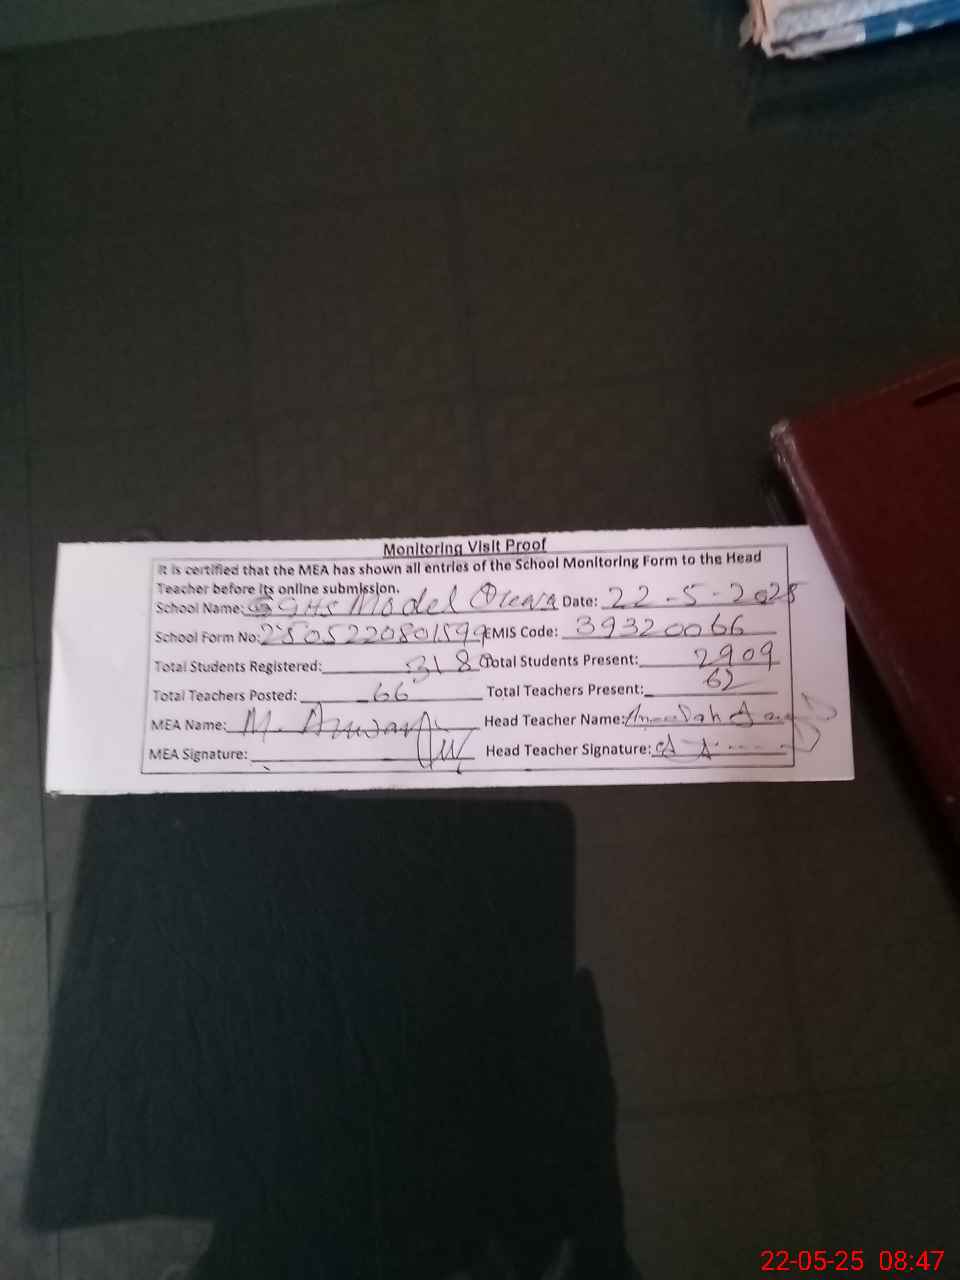 Monitoring Visit Proof
It is certified that the MEA has shown all entries of the School Monitoring Form to the Head
Teacher before its online submission.
School Name: GGHS Model Date: 22-5-2025
School Form No: EMIS Code: 39320066
Total Students Registered: Total Students Present: 2909
Total Teachers Posted: 66 Total Teachers Present: 62
MEA Name: M. Anwar Head Teacher Name:
MEA Signature: Head Teacher Signature:
22-05-25 08:47